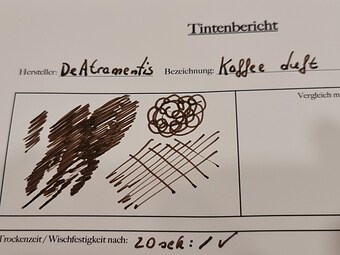 Tintenbericht
Hersteller: DeAtramentis Bezeichnung: Kaffee duft
Vergleich m
Trockenzeit / Wischfestigkeit nach: 20sek: / ✓